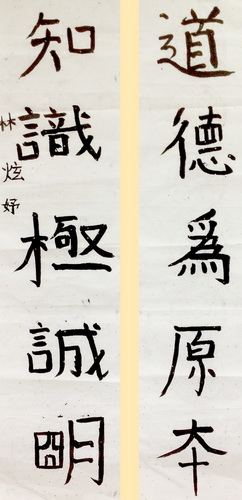 道德為原本
知識極誠明
林炫妤